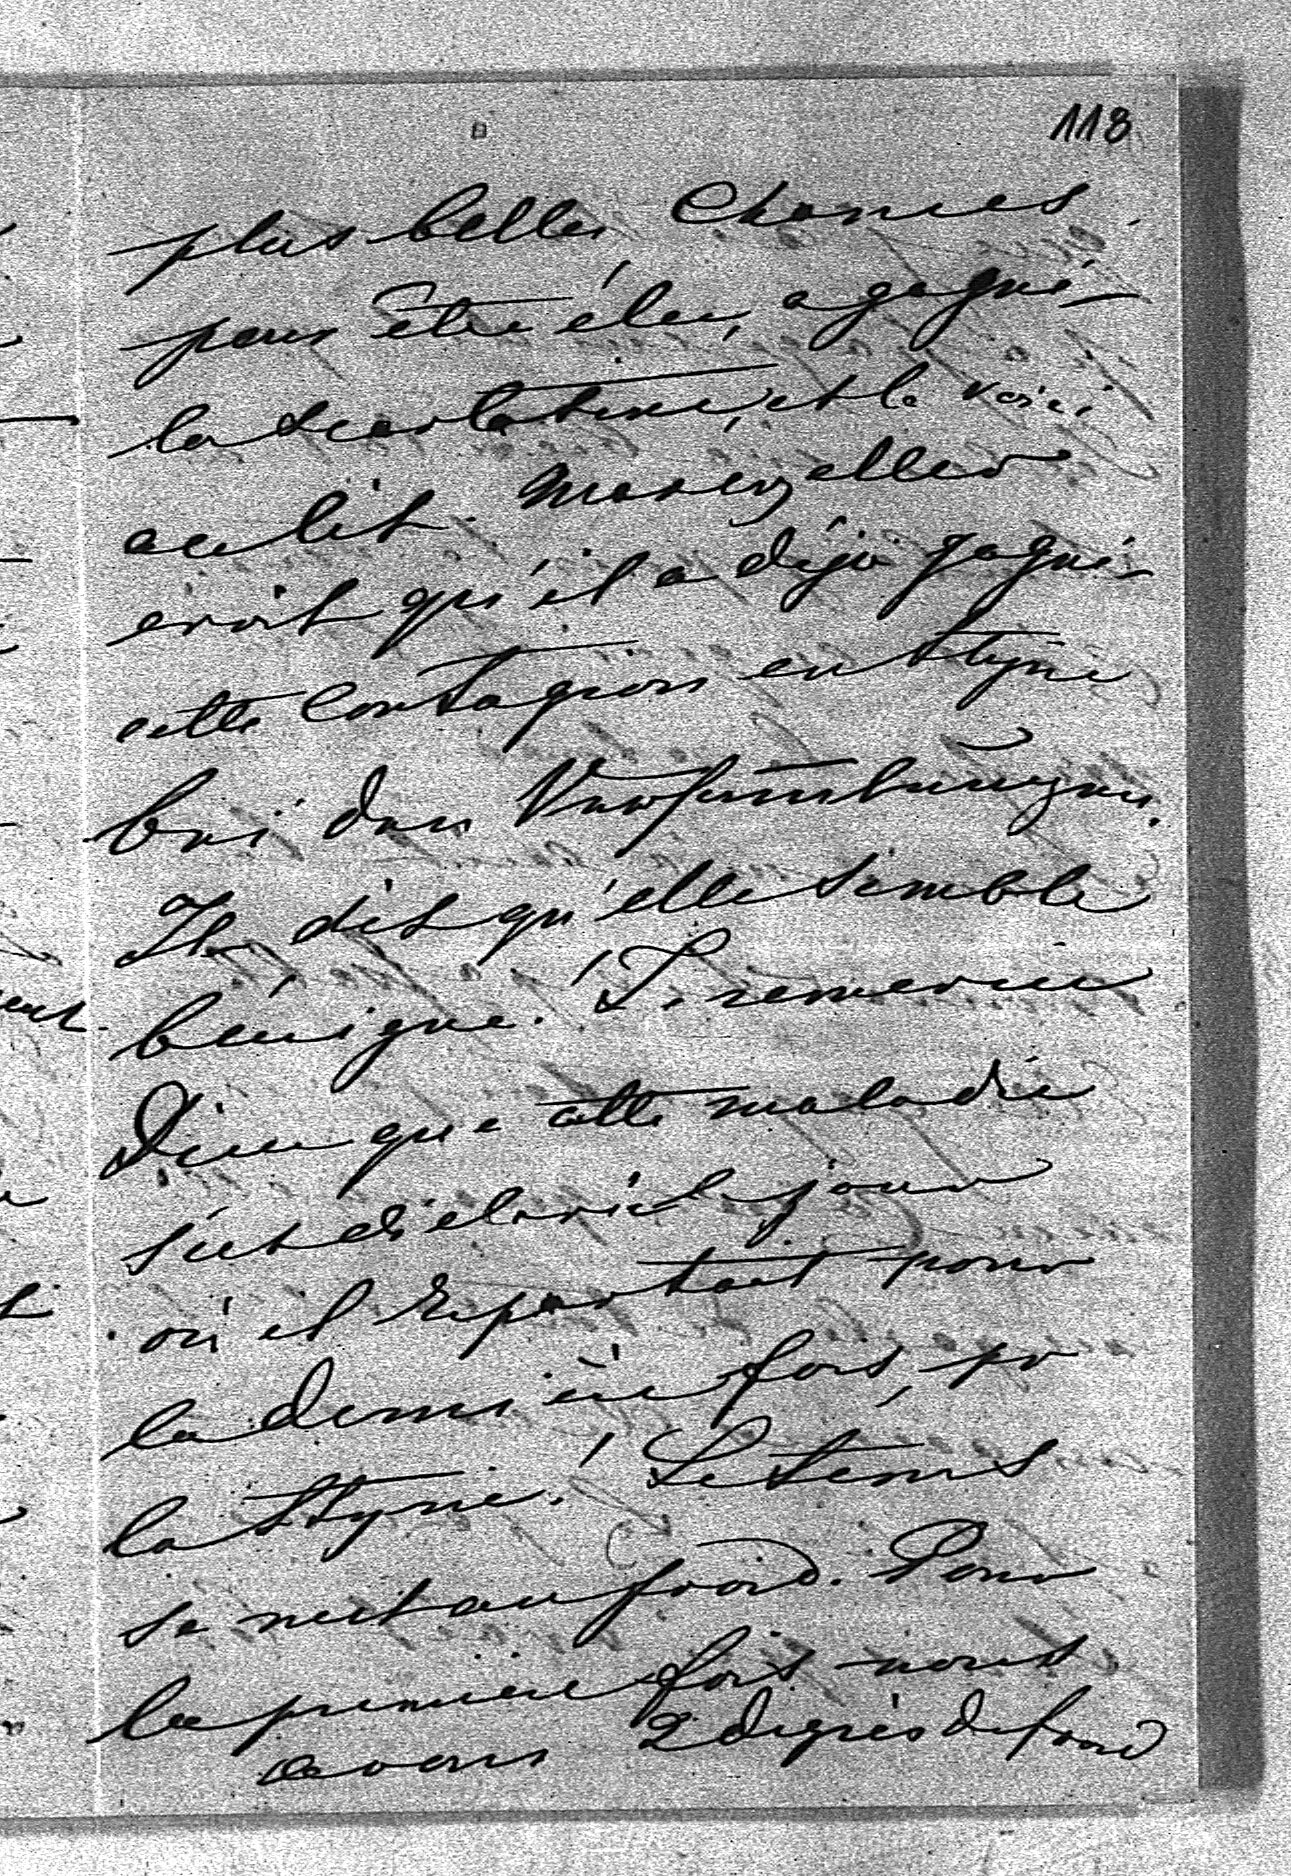 118
plus belles chances
pour être élu, a gagné
la scarlatine, et le voici
au lit. Morenzeller
croit qu'il a déjà gagné
cette contagion en Styrie
bei den Versammlungen.
Il dit qu'elle semble
bénigne! Je remercie
Dieu que cette maladie
s'est déclarée le jour
où il repartait pour
la dernière fois, pr
la Styrie! Le tems
se met au froid. Pour
la première fois nous
avons 2 degrés de froid